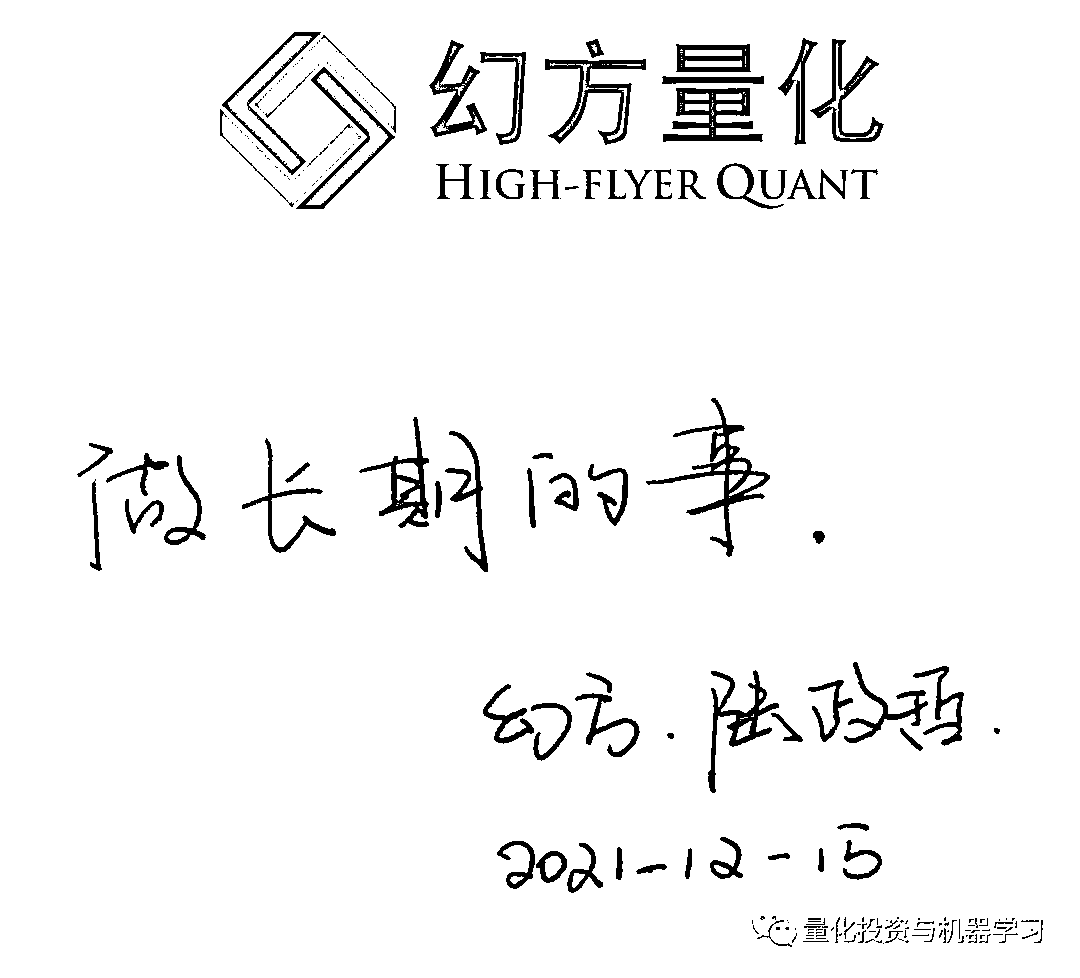 幻方量化
HIGH-FLYER QUANT
做长期的事.
幻方.陆政哲.
2021-12-15
量化投资与机器学习